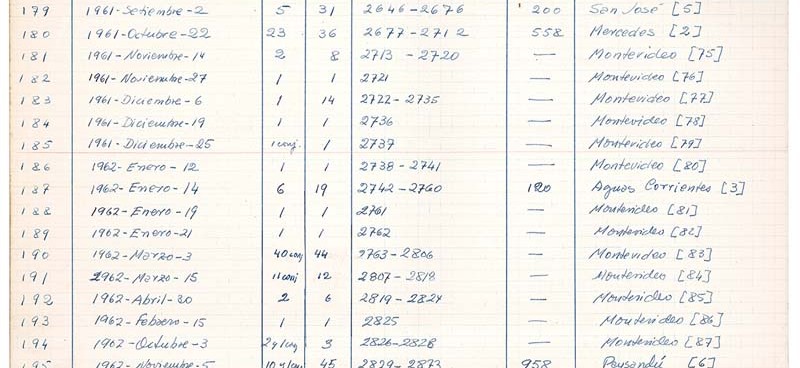 179 1961-Setiembre-2 5 31 2646-2676 200 San José [5]
180 1961-Octubre-22 23 36 2677-2712 558 Mercedes [2]
181 1961-Noviembre-14 2 8 2713-2720 — Montevideo [75]
182 1961-Noviembre-27 1 1 2721 — Montevideo [76]
183 1961-Diciembre-6 1 14 2722-2735 — Montevideo [77]
184 1961-Diciembre-19 1 1 2736 — Montevideo [78]
185 1961-Diciembre-25 1 conj. 1 2737 — Montevideo [79]
186 1962-Enero-12 1 1 2738-2741 — Montevideo [80]
187 1962-Enero-14 6 19 2742-2760 120 Aguas Corrientes [3]
188 1962-Enero-19 1 1 2761 — Montevideo [81]
189 1962-Enero-21 1 1 2762 — Montevideo [82]
190 1962-Marzo-3 40 conj 44 2763-2806 — Montevideo [83]
191 1962-Marzo-15 11 conj 12 2807-2818 — Montevideo [84]
192 1962-Abril-30 2 6 2819-2824 — Montevideo [85]
193 1962-Febrero-15 1 1 2825 — Montevideo [86]
194 1962-Octubre-3 2 y conj 3 2826-2828 — Montevideo [87]
195 1962-Noviembre-5 10 y conj 45 2829-2873 958 Paysandú [6]